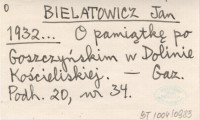 0
BIELATOWICZ Jan
1932... O pamiątkę po
Goszczyńskim w Dolinie
Kościeliskiej. — Gaz.
Podh. 20, nr 34.
BT 1004/0983